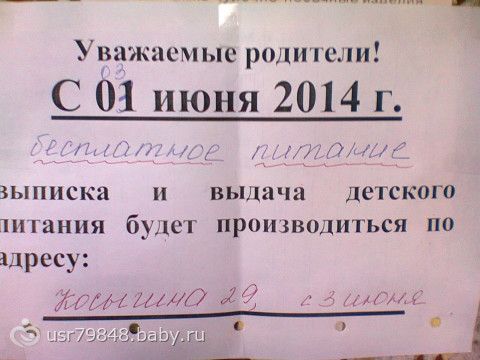 Уважаемые родители!
03
С 01 июня 2014 г.
бесплатное питание
выписка и выдача детского
питания будет производиться по
адресу:
Косыгина 29, с 3 июня
usr79848.baby.ru